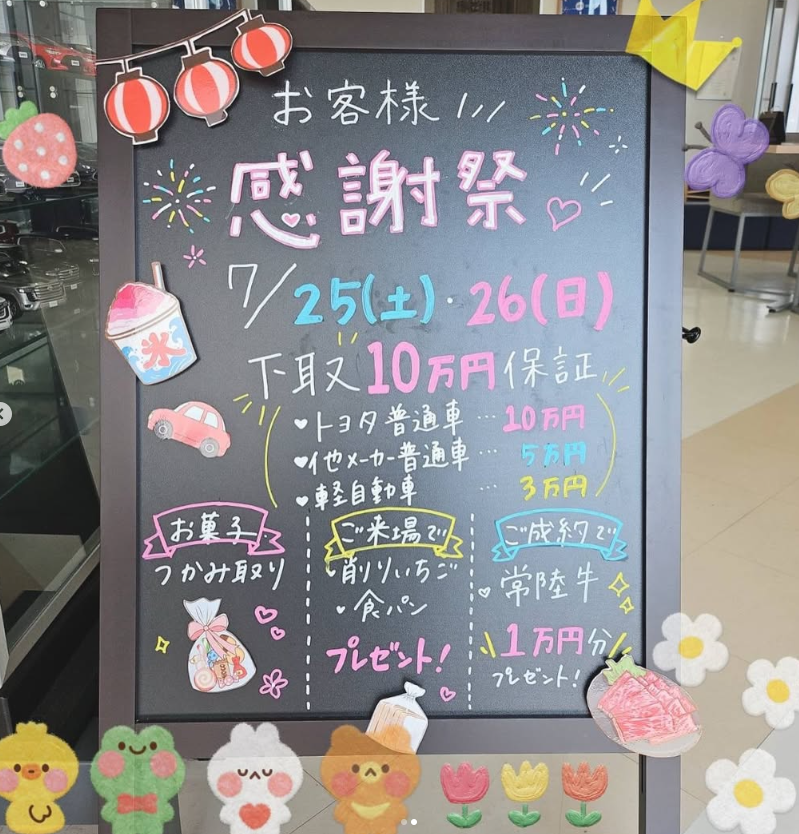 お客様
感謝祭
7/25(土)・26(日)
下取10万円保証
・トヨタ普通車…10万円
・他メーカー普通車…5万円
・軽自動車…3万円
お菓子
つかみ取り
ご来場で
・削りいちご
・食パン
プレゼント!
ご成約で
常陸牛
1万円分
プレゼント!
氷